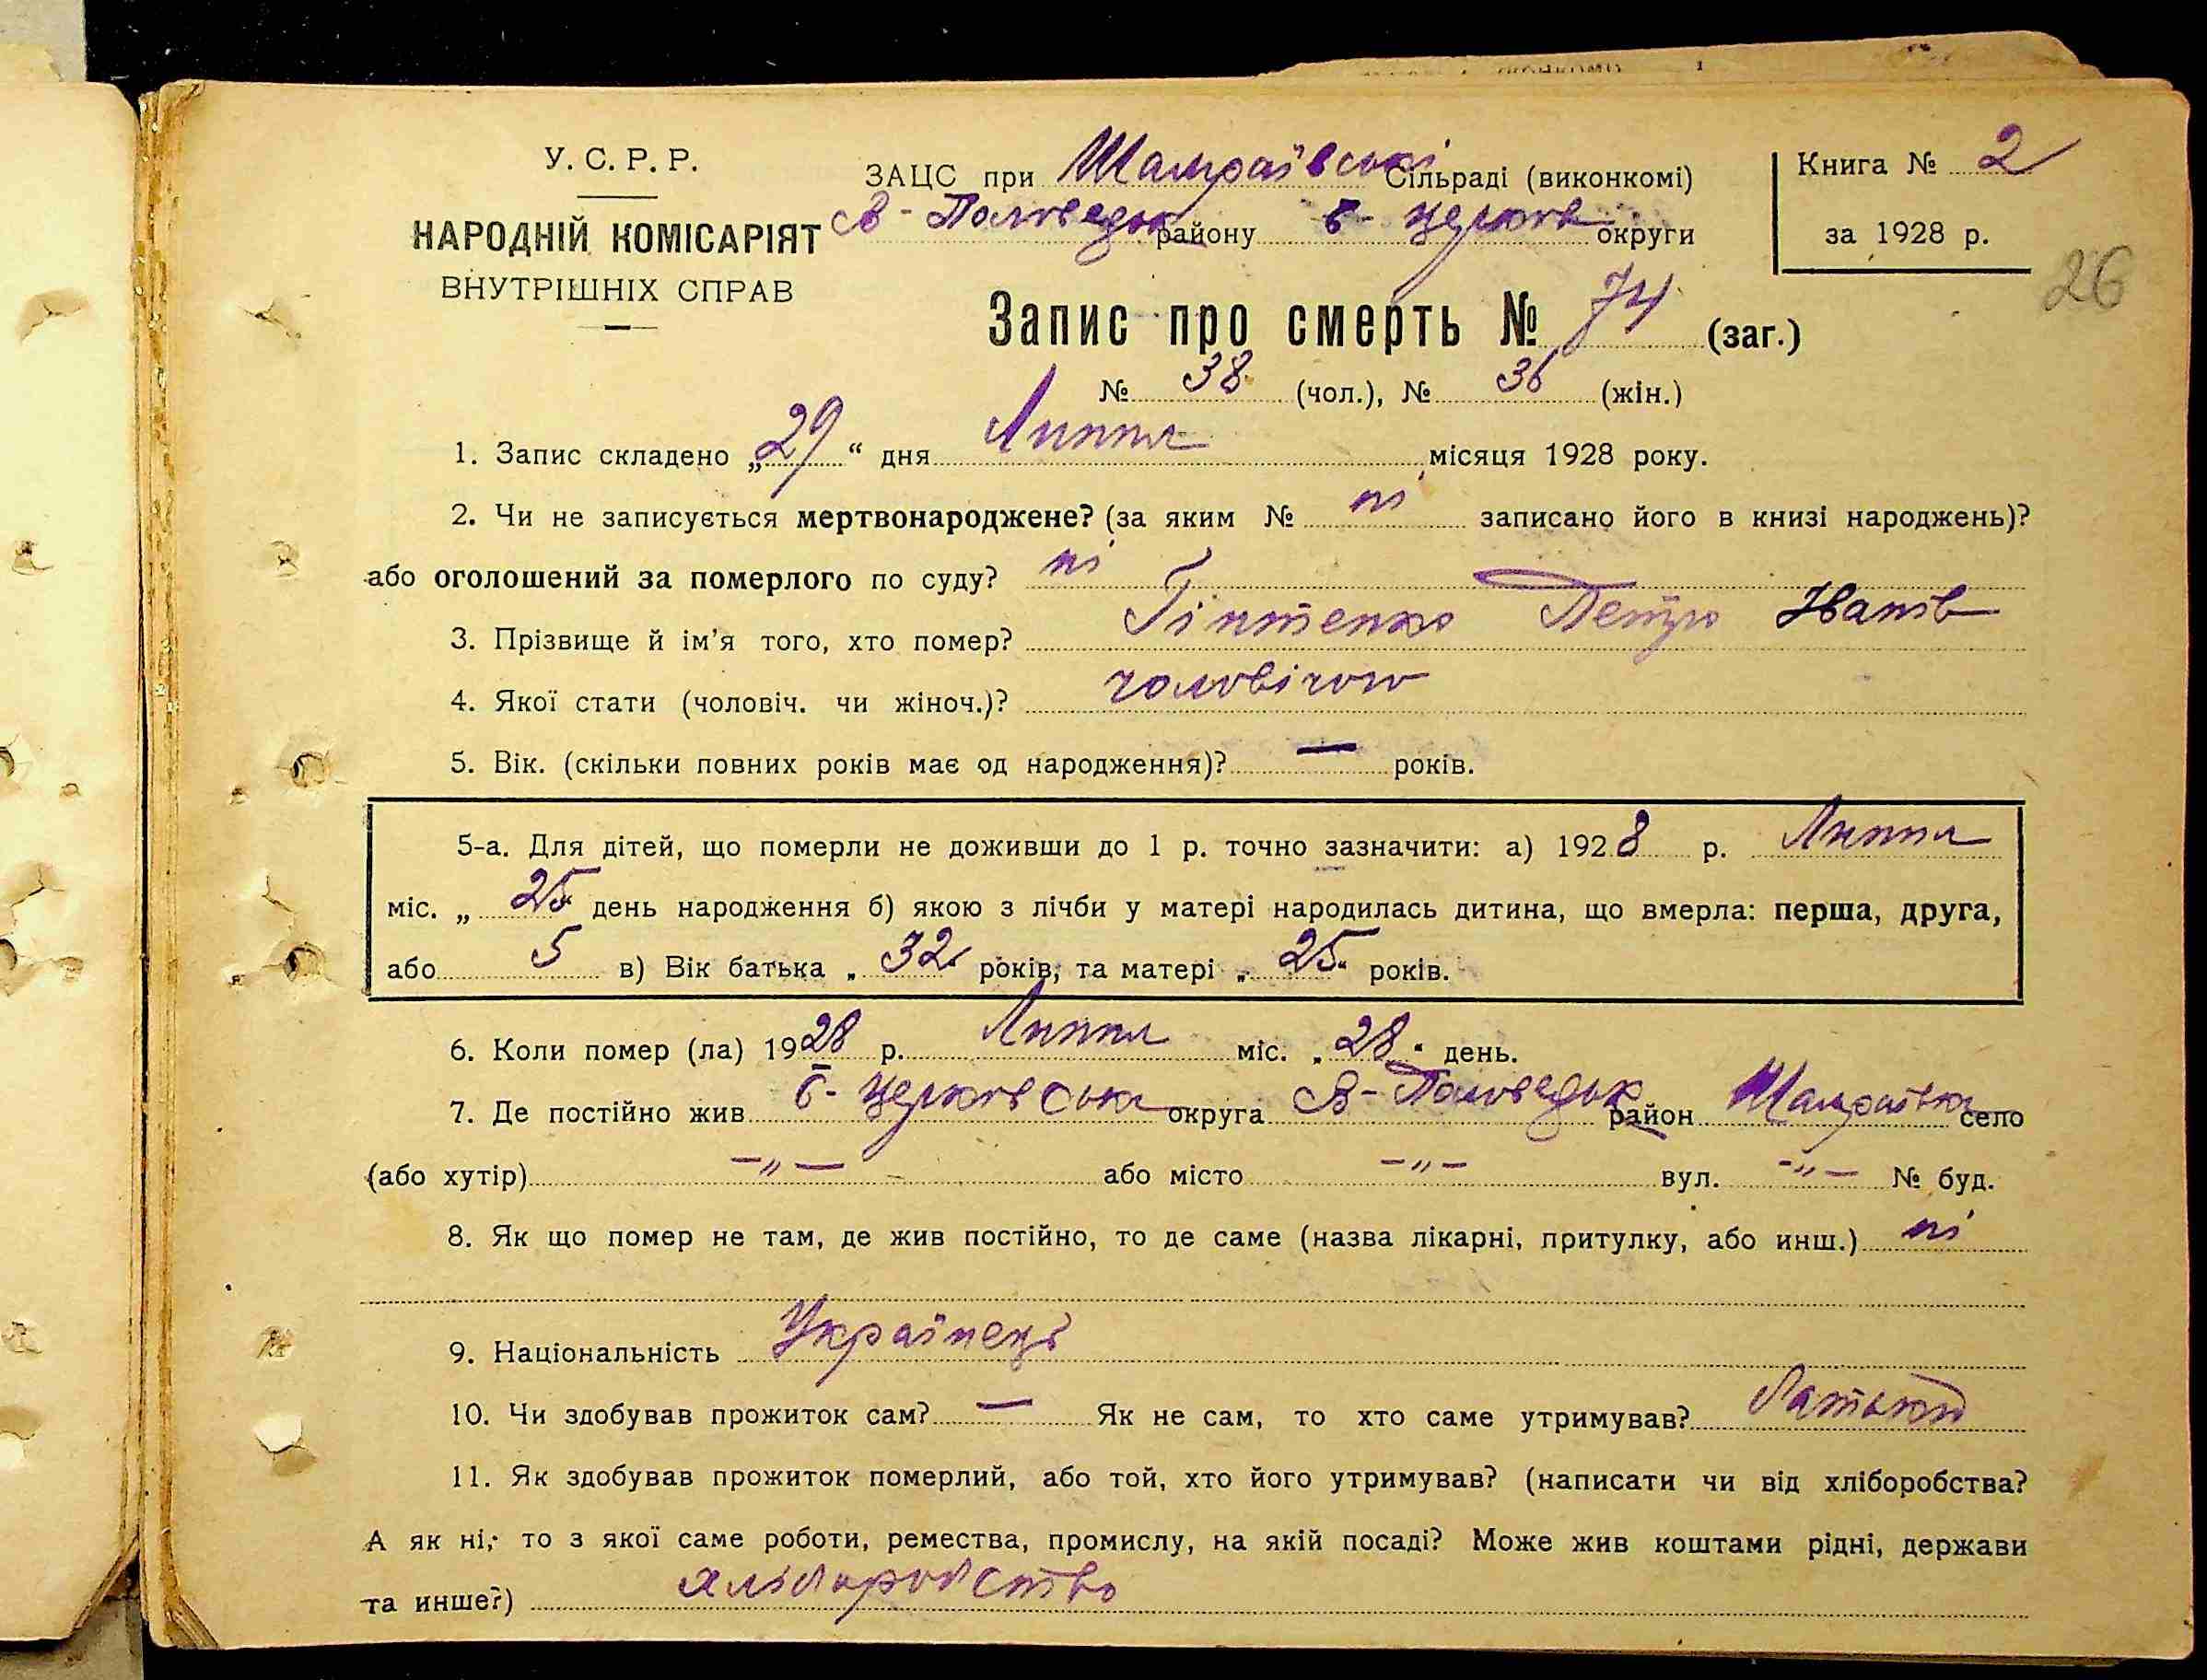 У. С. Р. Р.
НАРОДНІЙ КОМІСАРІЯТ
ВНУТРІШНІХ СПРАВ
ЗАЦС при Шамраївські Сільраді (виконкомі)
В-Половецьк району Б-Церков округи
Книга № 2
за 1928 р.
26
Запис про смерть № 74 (заг.)
№ 38 (чол.), № 36 (жін.)
1. Запис складено „29“ дня Липня місяця 1928 року.
2. Чи не записується мертвонароджене? (за яким № ні записано його в книзі народжень)?
або оголошений за померлого по суду? ні
3. Прізвище й ім'я того, хто помер? Петро Іванів
4. Якої стати (чоловіч. чи жіноч.)? чоловічого
5. Вік. (скільки повних років має од народження)? — років.
5-а. Для дітей, що померли не доживши до 1 р. точно зазначити: а) 1928 р. Липня
міс. „ 25 день народження б) якою з лічби у матері народилась дитина, що вмерла: перша, друга,
або 5 в) Вік батька „ 32 років, та матері „ 25 “ років.
6. Коли помер (ла) 1928 р. Липня міс. „28“ день.
7. Де постійно жив Б-Церковська округа В-Половецьк район Шамраївка село
(або хутір) —„— або місто —„— вул. —„— № буд.
8. Як що помер не там, де жив постійно, то де саме (назва лікарні, притулку, або инш.) ні
9. Національність Українець
10. Чи здобував прожиток сам? — Як не сам, то хто саме утримував? батьки
11. Як здобував прожиток померлий, або той, хто його утримував? (написати чи від хліборобства?
А як ні, то з якої саме роботи, ремества, промислу, на якій посаді? Може жив коштами рідні, держави
та инше?) хліборобство